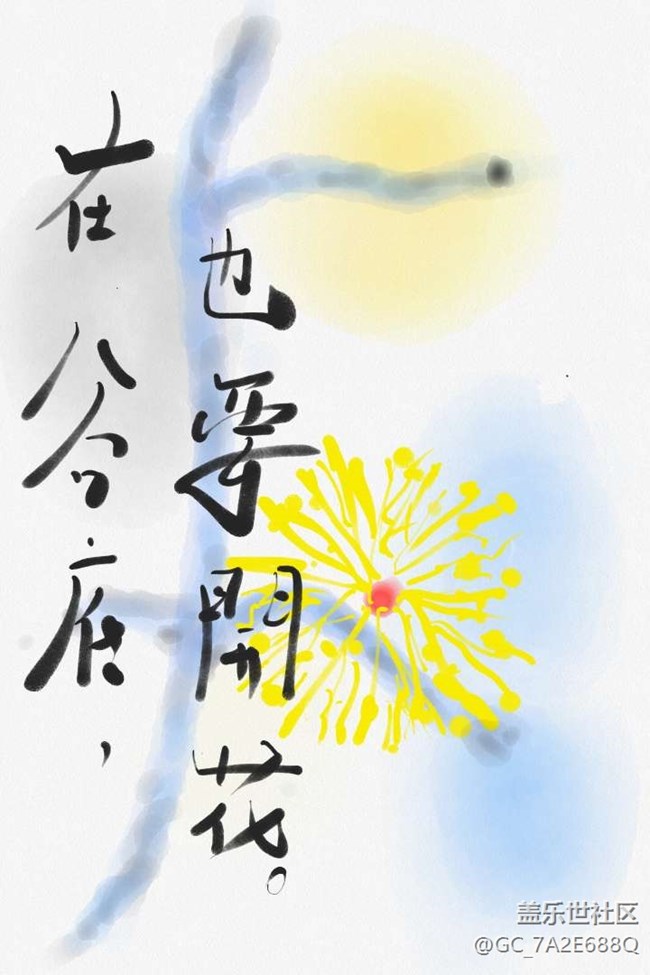 在谷底，
也要開花。
盖乐世社区
@GC_7A2E688Q